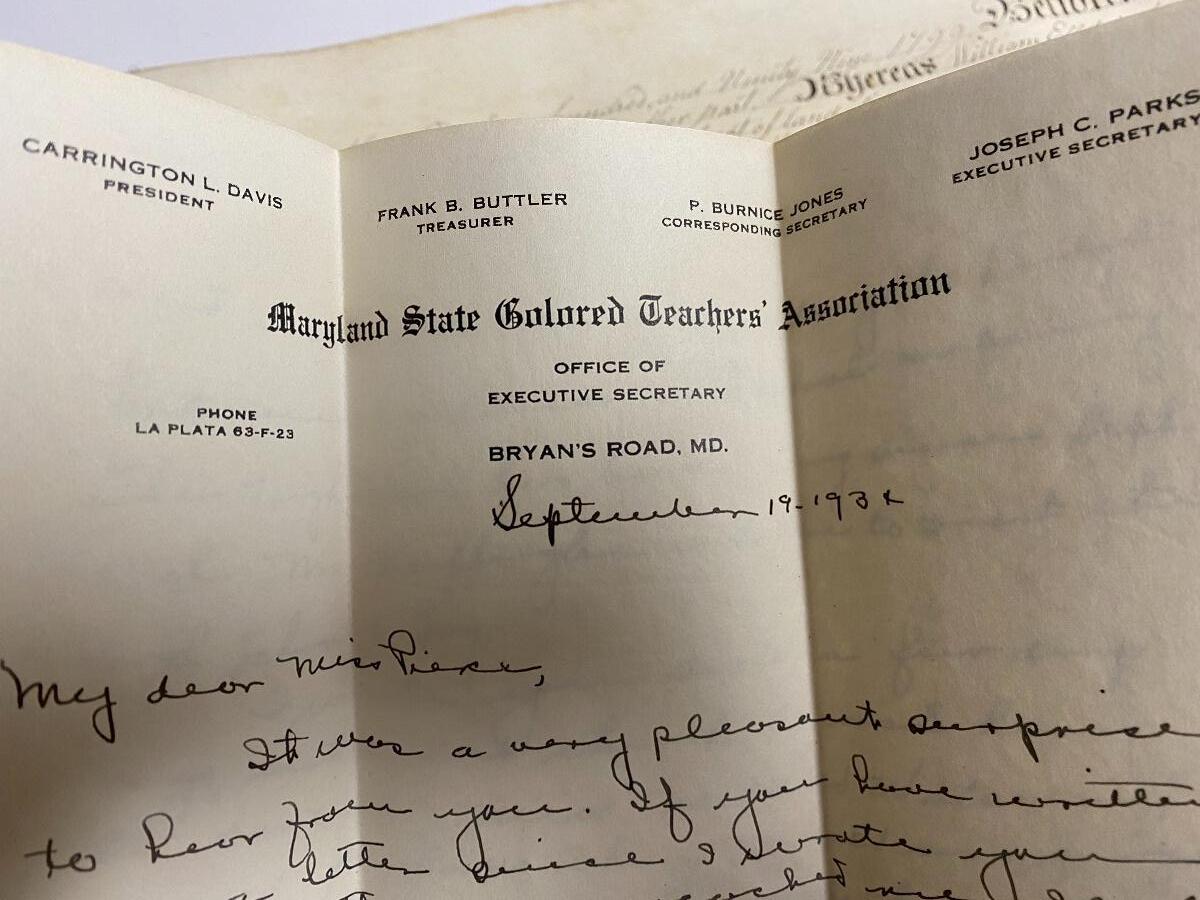 Whereas William
hundred and Ninety Nine 1799
CARRINGTON L. DAVIS
PRESIDENT
FRANK B. BUTTLER
TREASURER
P. BURNICE JONES
CORRESPONDING SECRETARY
JOSEPH C. PARKS
EXECUTIVE SECRETARY
Maryland State Colored Teachers' Association
OFFICE OF
EXECUTIVE SECRETARY
PHONE
LA PLATA 63-F-23
BRYAN'S ROAD, MD.
September 19-193
My dear Miss Pierce,
It was a very pleasant surprise
to hear from you. If you have written
letter since I wrote you
reached me